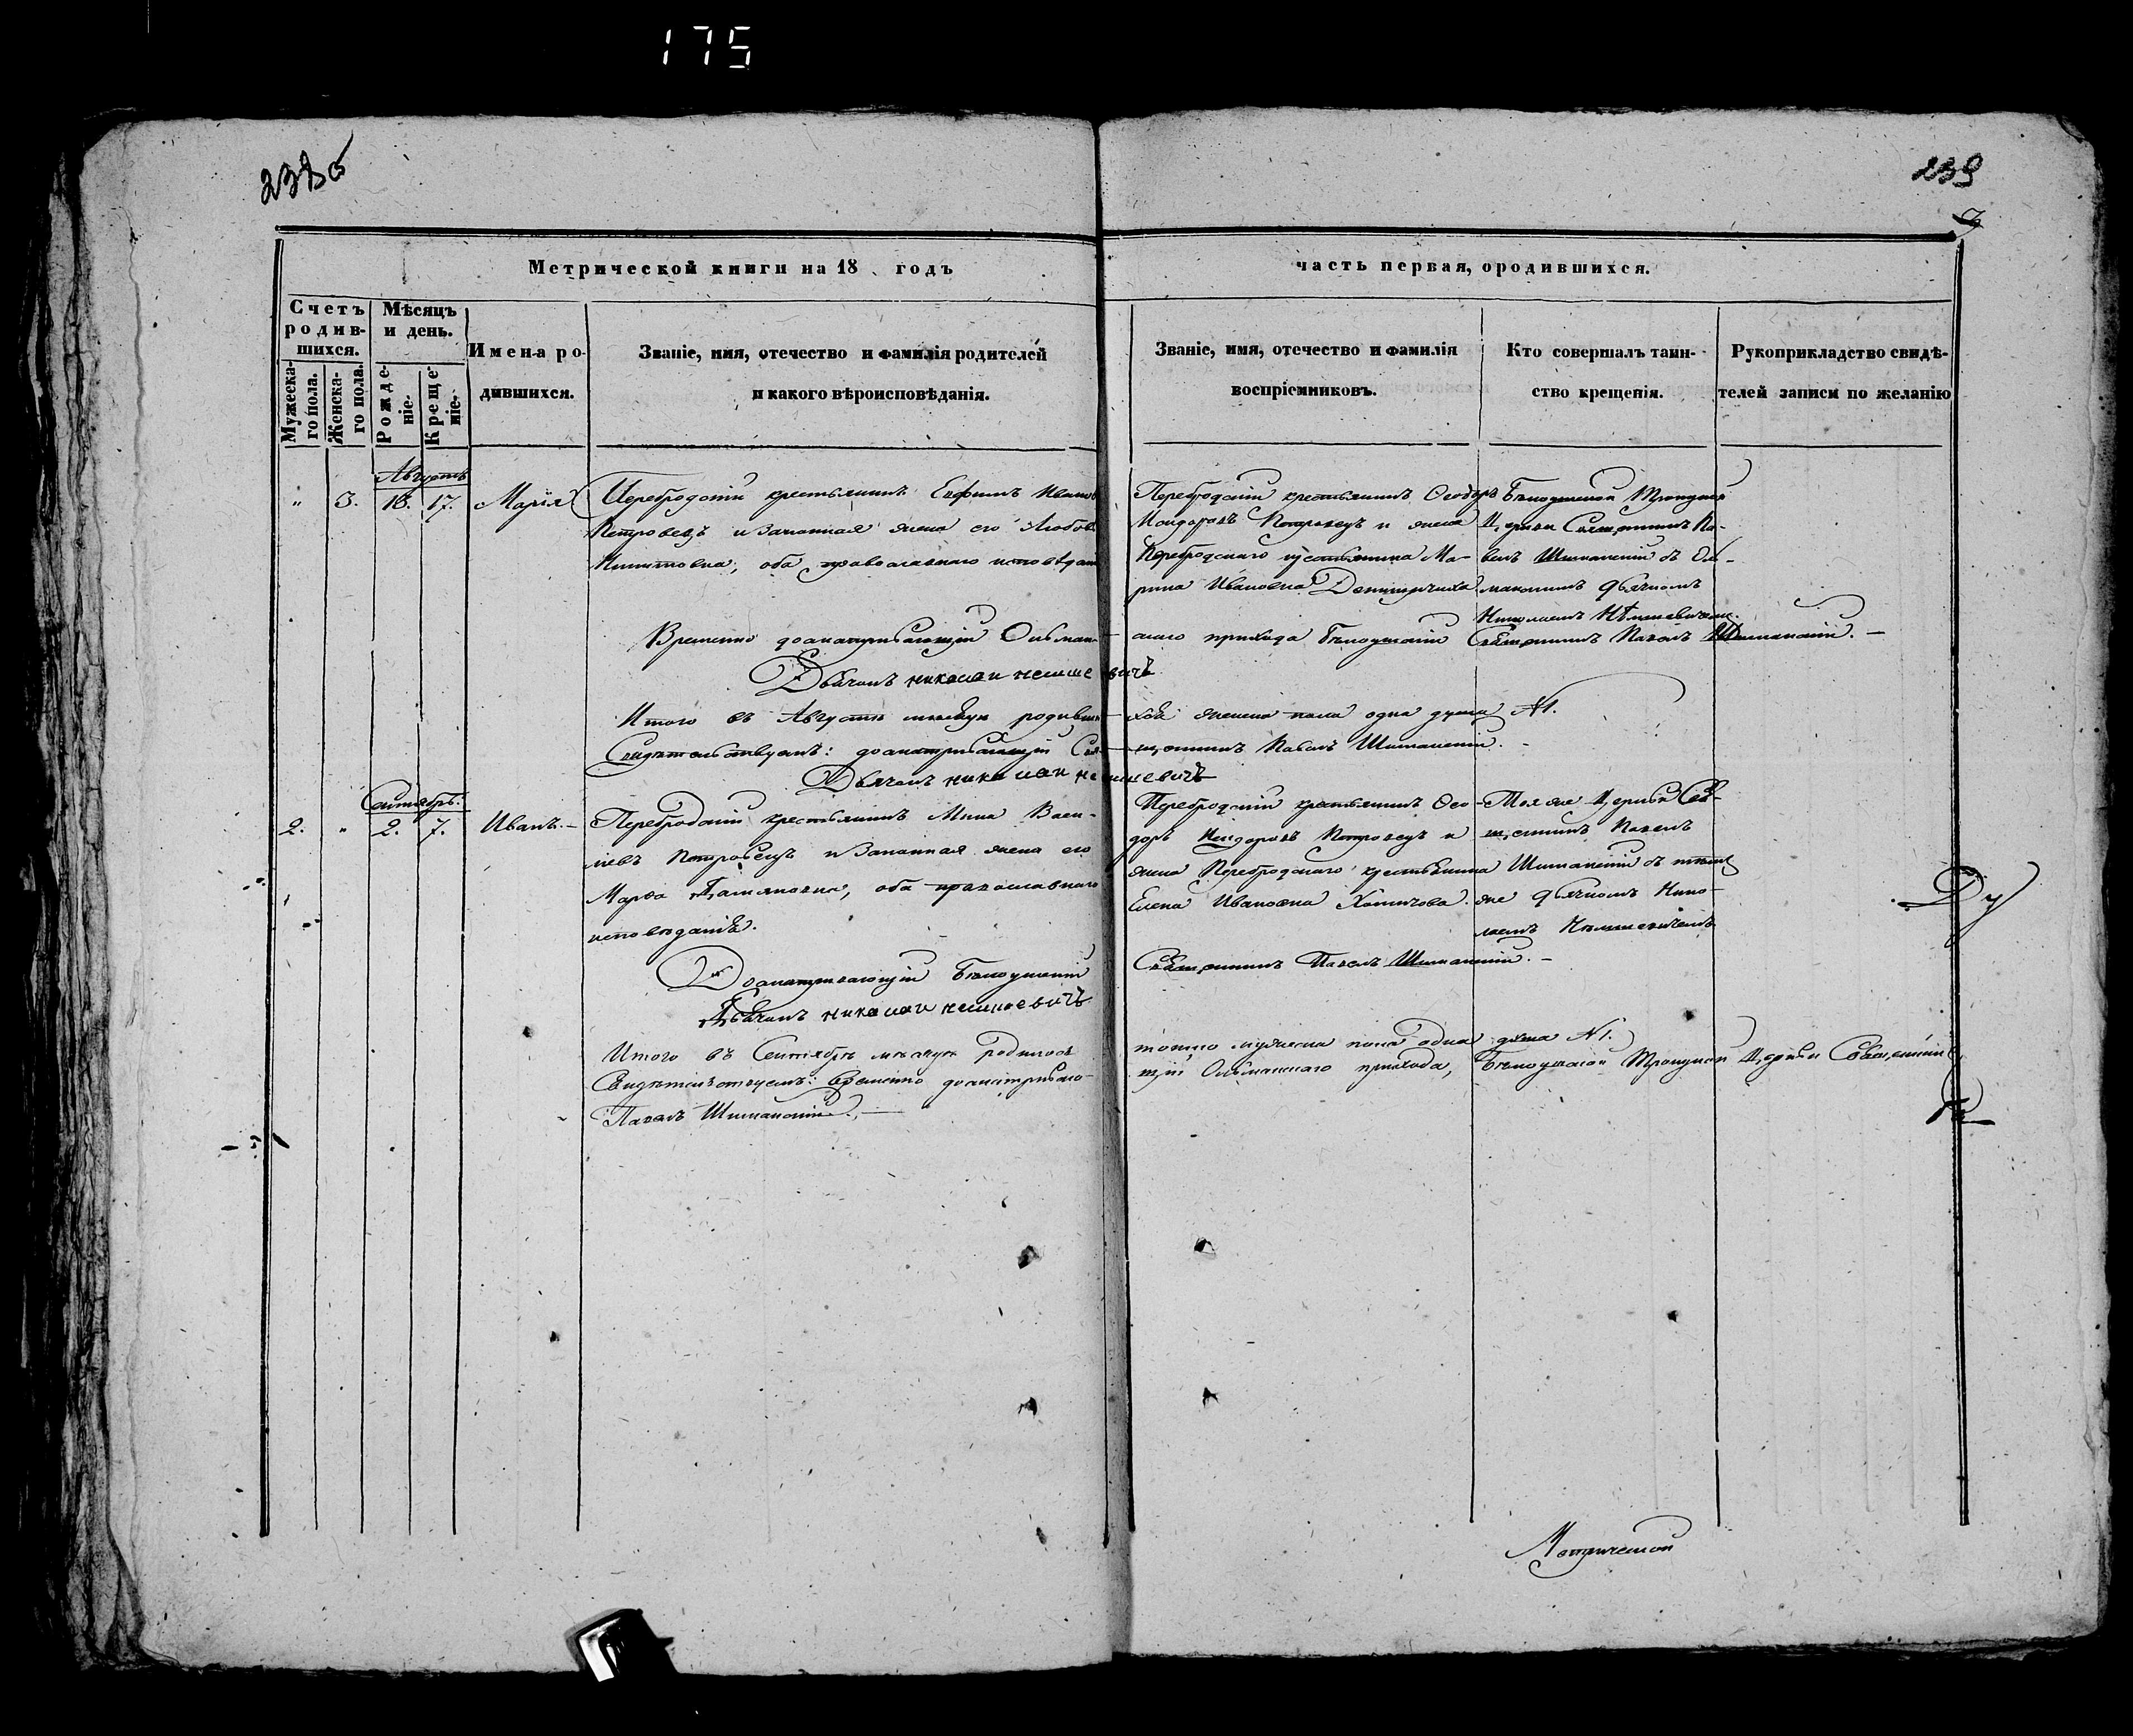 175
238об
239
Метрической книги на 18 годъ
часть первая, ородившихся.
Счетъ родив-шихся.
Мужеска-го пола.
Женска-го пола.
Мѣсяцъ и день.
Рожде-ніе.
Креще-ніе.
Имена ро-
дившихся.
Званіе, имя, отечество и фамилія родителей
и какого вѣроисповѣданія.
Званіе, имя, отечество и фамилія
воспріемниковъ.
Кто совершалъ таин-
ство крещенія.
Рукоприкладство свидѣ-
телей записи по желанію
Августъ
" 3. 16. 17. Марія
Перебродскій крестьянинъ Евфимъ Иванов
Петровецъ и Законная жена его Любов
Никитовна, оба православнаго исповѣдан
Перебродскій крестьянинъ Ѳеодоръ
Петровецъ и жена
Перебродскаго крестьянина Ма-
рина Ивановна
Бѣлоушской Троицкой
Церкви Священникъ Па-
велъ Шиманскій съ Ол-
манскимъ дьячкомъ
Николаемъ Нѣмшевичемъ.
Временно досматривающій Ольман-
скаго прихода Бѣлоушскій Священникъ Павелъ Шиманскій. —
Дьячокъ николаи немшевичъ
Итого въ Августѣ мѣсяцѣ родивш-
хся женска пола одна душа №1.
Свидѣтельствуемъ: досматривающій Свя-
щенникъ Павелъ Шиманскій. -
Дьячокъ николаи немшевичъ
Сентябрь.
2. " 2. 7. Иванъ. —
Перебродскій крестьянинъ Мина Васи-
ліевъ Петровецъ и Законная жена его
Марѳа Даміановна, оба православнаго
исповѣданія.
Перебродскій крестьянинъ Ѳео-
доръ Петровецъ и
жена Перебродскаго крестьянина
Елена Ивановна
Тоя же Церкви Свя-
щенникъ Павелъ
Шиманскій съ тѣмъ
же дьячкомъ Нико-
лаемъ Нѣмшевичемъ
Досматривающій Бѣлоушскій
Священникъ Павелъ Шиманскій. —
Дьячокъ николаи немшевичъ
Итого въ Сентябрѣ мѣсяцѣ родилось
только мужеска пола одна душа №1.
Свидѣтельствуемъ: Временно досматриваю-
щій Ольманскаго прихода, Бѣлоушской Троицкой Церкви Священникъ
Павелъ Шиманскій. —
Метрической